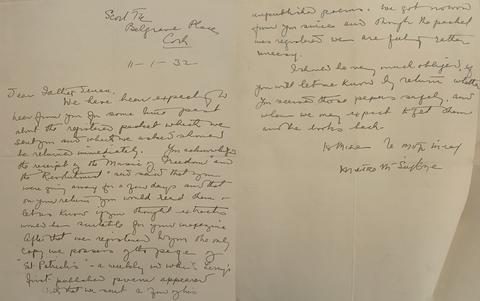 Scoil Íte
Belgrave Place
Cork
11-1-32
Dear Father Senan,
We have been expecting to
hear from you for some time past
about the registered packet which we
sent you and which we asked should
be returned immediately. You acknowledged
the receipt of the "Music of Freedom" and
the "Revolutionist" and said that you
were going away for a few days and that
on your return you would read them &
let us know if you thought extracts
would be suitable for your magazine
After that we registered to you the only
copy we possess of the page of
"St Patrick's" - a weekly in which Terry's
first published poem appeared
that we sent a few of his
unpublished poems. We got no word
from you since and though the packet
was registered we are feeling rather
uneasy.
I should be very much obliged if
you will let me know by return whether
you received those papers safely, and
when we may expect to get them
and the books back.
Is mise le mór meas
Máire M Suibhne